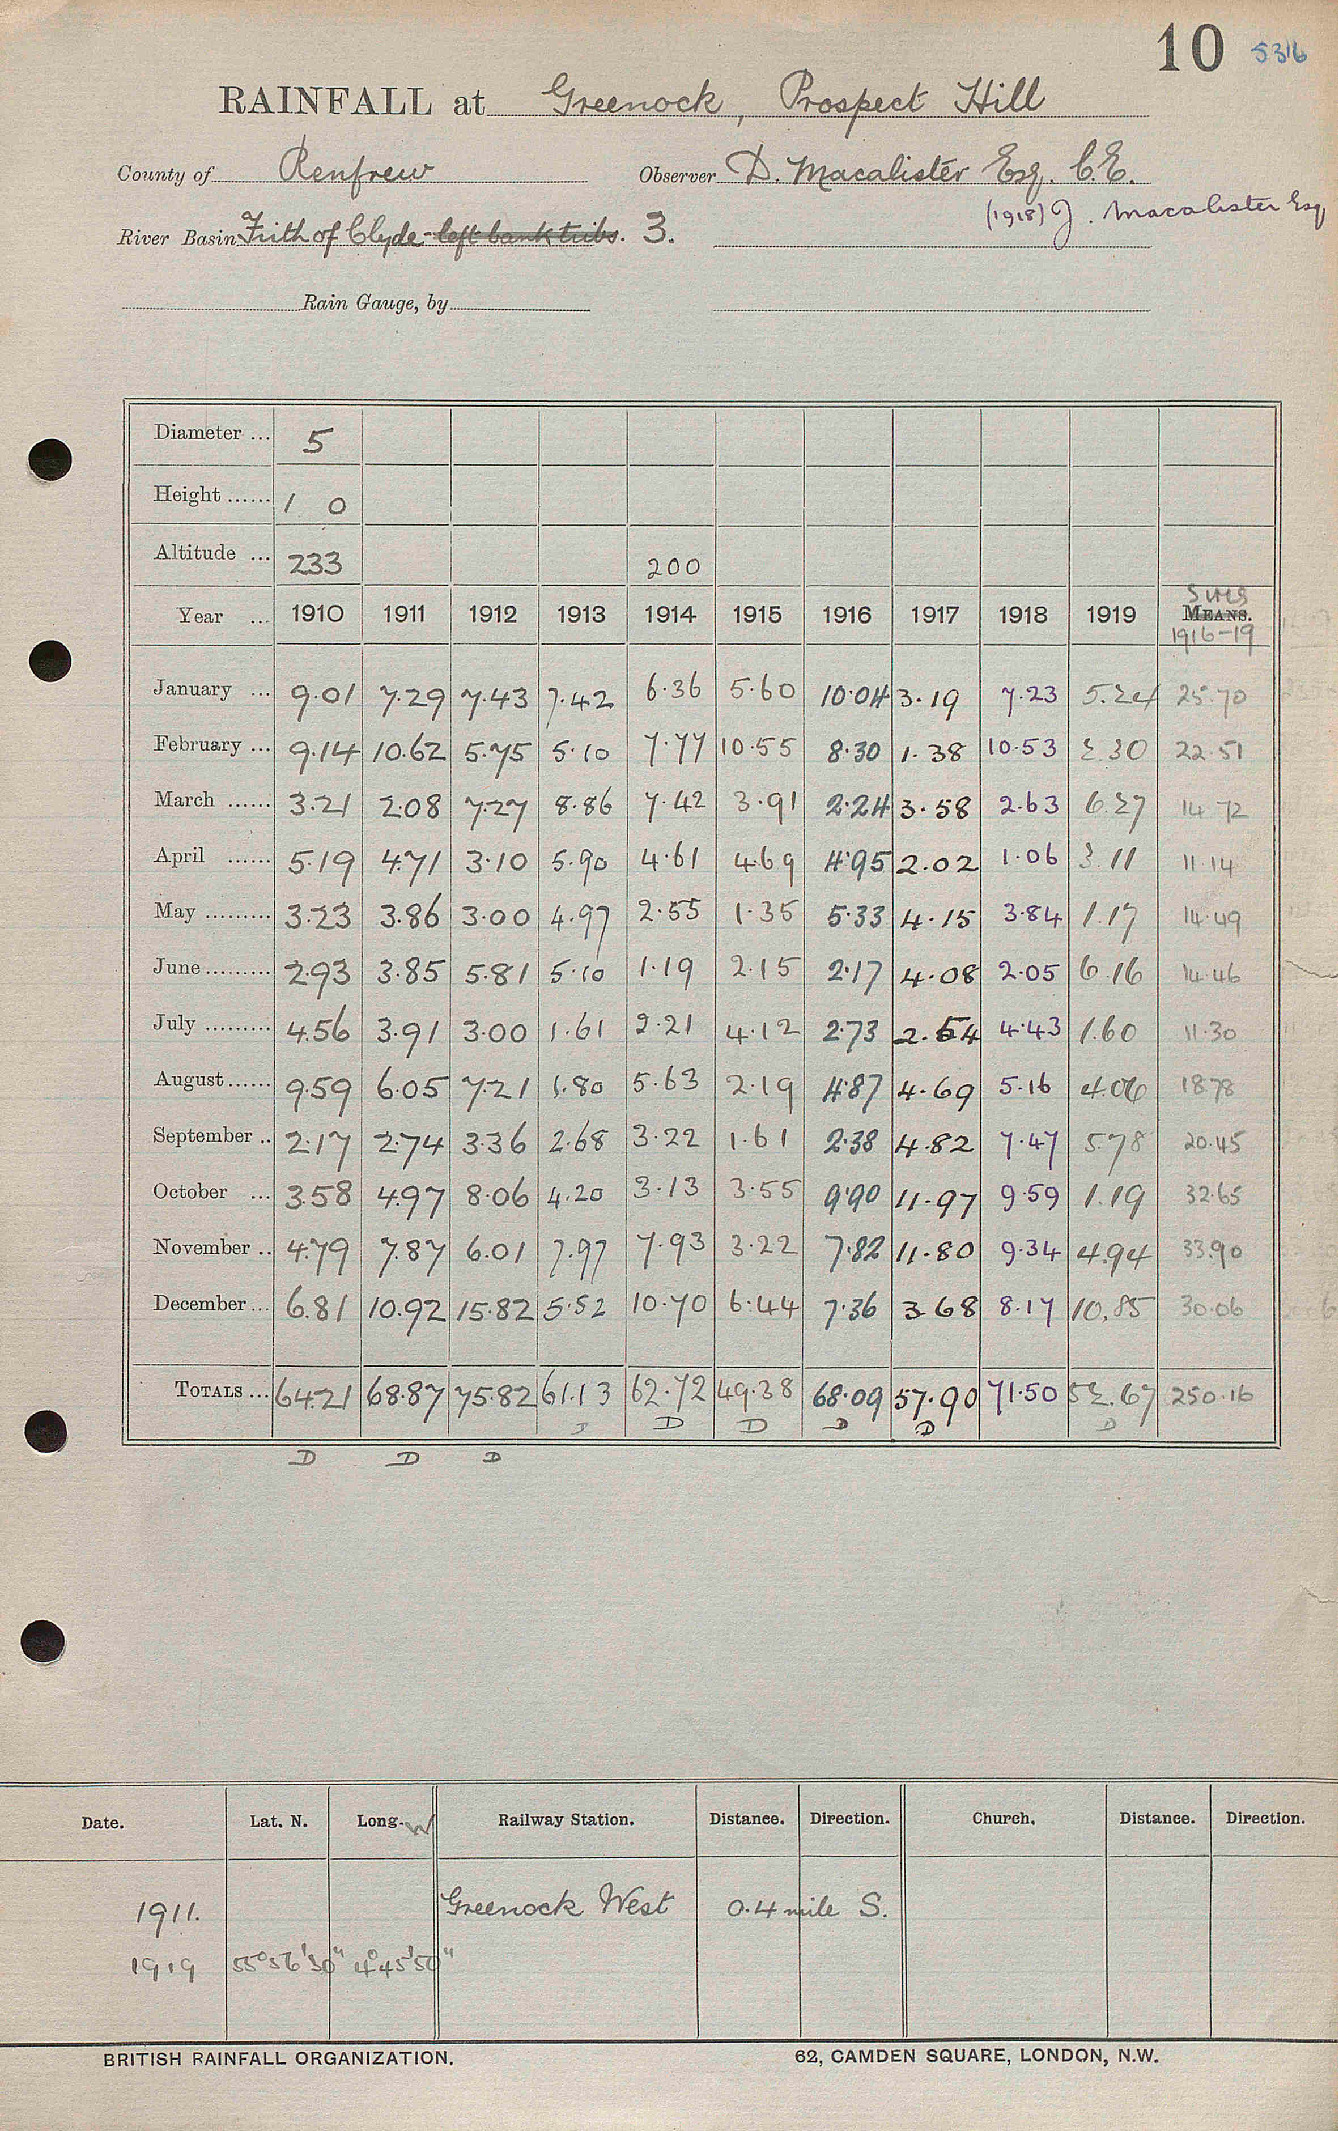 10 5316
RAINFALL at Greenock, Prospect Hill
County of Renfrew Observer D. Macalister Esq. C.E.
(1918) J. Macalister Esq
River Basin Frith of Clyde - left bank tribs. 3.
Rain Gauge, by
Diameter ... 5
Height ...... 1 0
Altitude ... 233 200
Sums
Year ... 1910 1911 1912 1913 1914 1915 1916 1917 1918 1919 MEANS.
1916-19
January ... 9.01 7.29 7.43 7.42 6.36 5.60 10.04 3.19 7.23 5.24 25.70
February ... 9.14 10.62 5.75 5.10 7.77 10.55 8.30 1.38 10.53 2.30 22.51
March ...... 3.21 2.08 7.27 8.86 7.42 3.91 2.24 3.58 2.63 6.27 14.72
April ...... 5.19 4.71 3.10 5.90 4.61 4.69 4.95 2.02 1.06 3.11 11.14
May ......... 3.23 3.86 3.00 4.97 2.55 1.35 5.33 4.15 3.84 1.17 14.49
June ......... 2.93 3.85 5.81 5.10 1.19 2.15 2.17 4.08 2.05 6.16 14.46
July ......... 4.56 3.91 3.00 1.61 2.21 4.12 2.73 2.54 4.43 1.60 11.30
August ...... 9.59 6.05 7.21 1.80 5.63 2.19 4.87 4.69 5.16 4.06 18.78
September .. 2.17 2.74 3.36 2.68 3.22 1.61 2.38 4.82 7.47 5.78 20.45
October ... 3.58 4.97 8.06 4.20 3.13 3.55 9.90 11.97 9.59 1.19 32.65
November .. 4.79 7.87 6.01 7.97 7.93 3.22 7.82 11.80 9.34 4.94 33.90
December ... 6.81 10.92 15.82 5.52 10.70 6.44 7.36 3.68 8.17 10.85 30.06
TOTALS ... 64.21 68.87 75.82 61.13 62.72 49.38 68.09 57.90 71.50 52.67 250.16
D D D D D D
D D D
Date. Lat. N. Long. W Railway Station. Distance. Direction. Church. Distance. Direction.
1911. Greenock West 0.4 mile S.
1919 55°56'30" 4°45'50"
BRITISH RAINFALL ORGANIZATION. 62, CAMDEN SQUARE, LONDON, N.W.